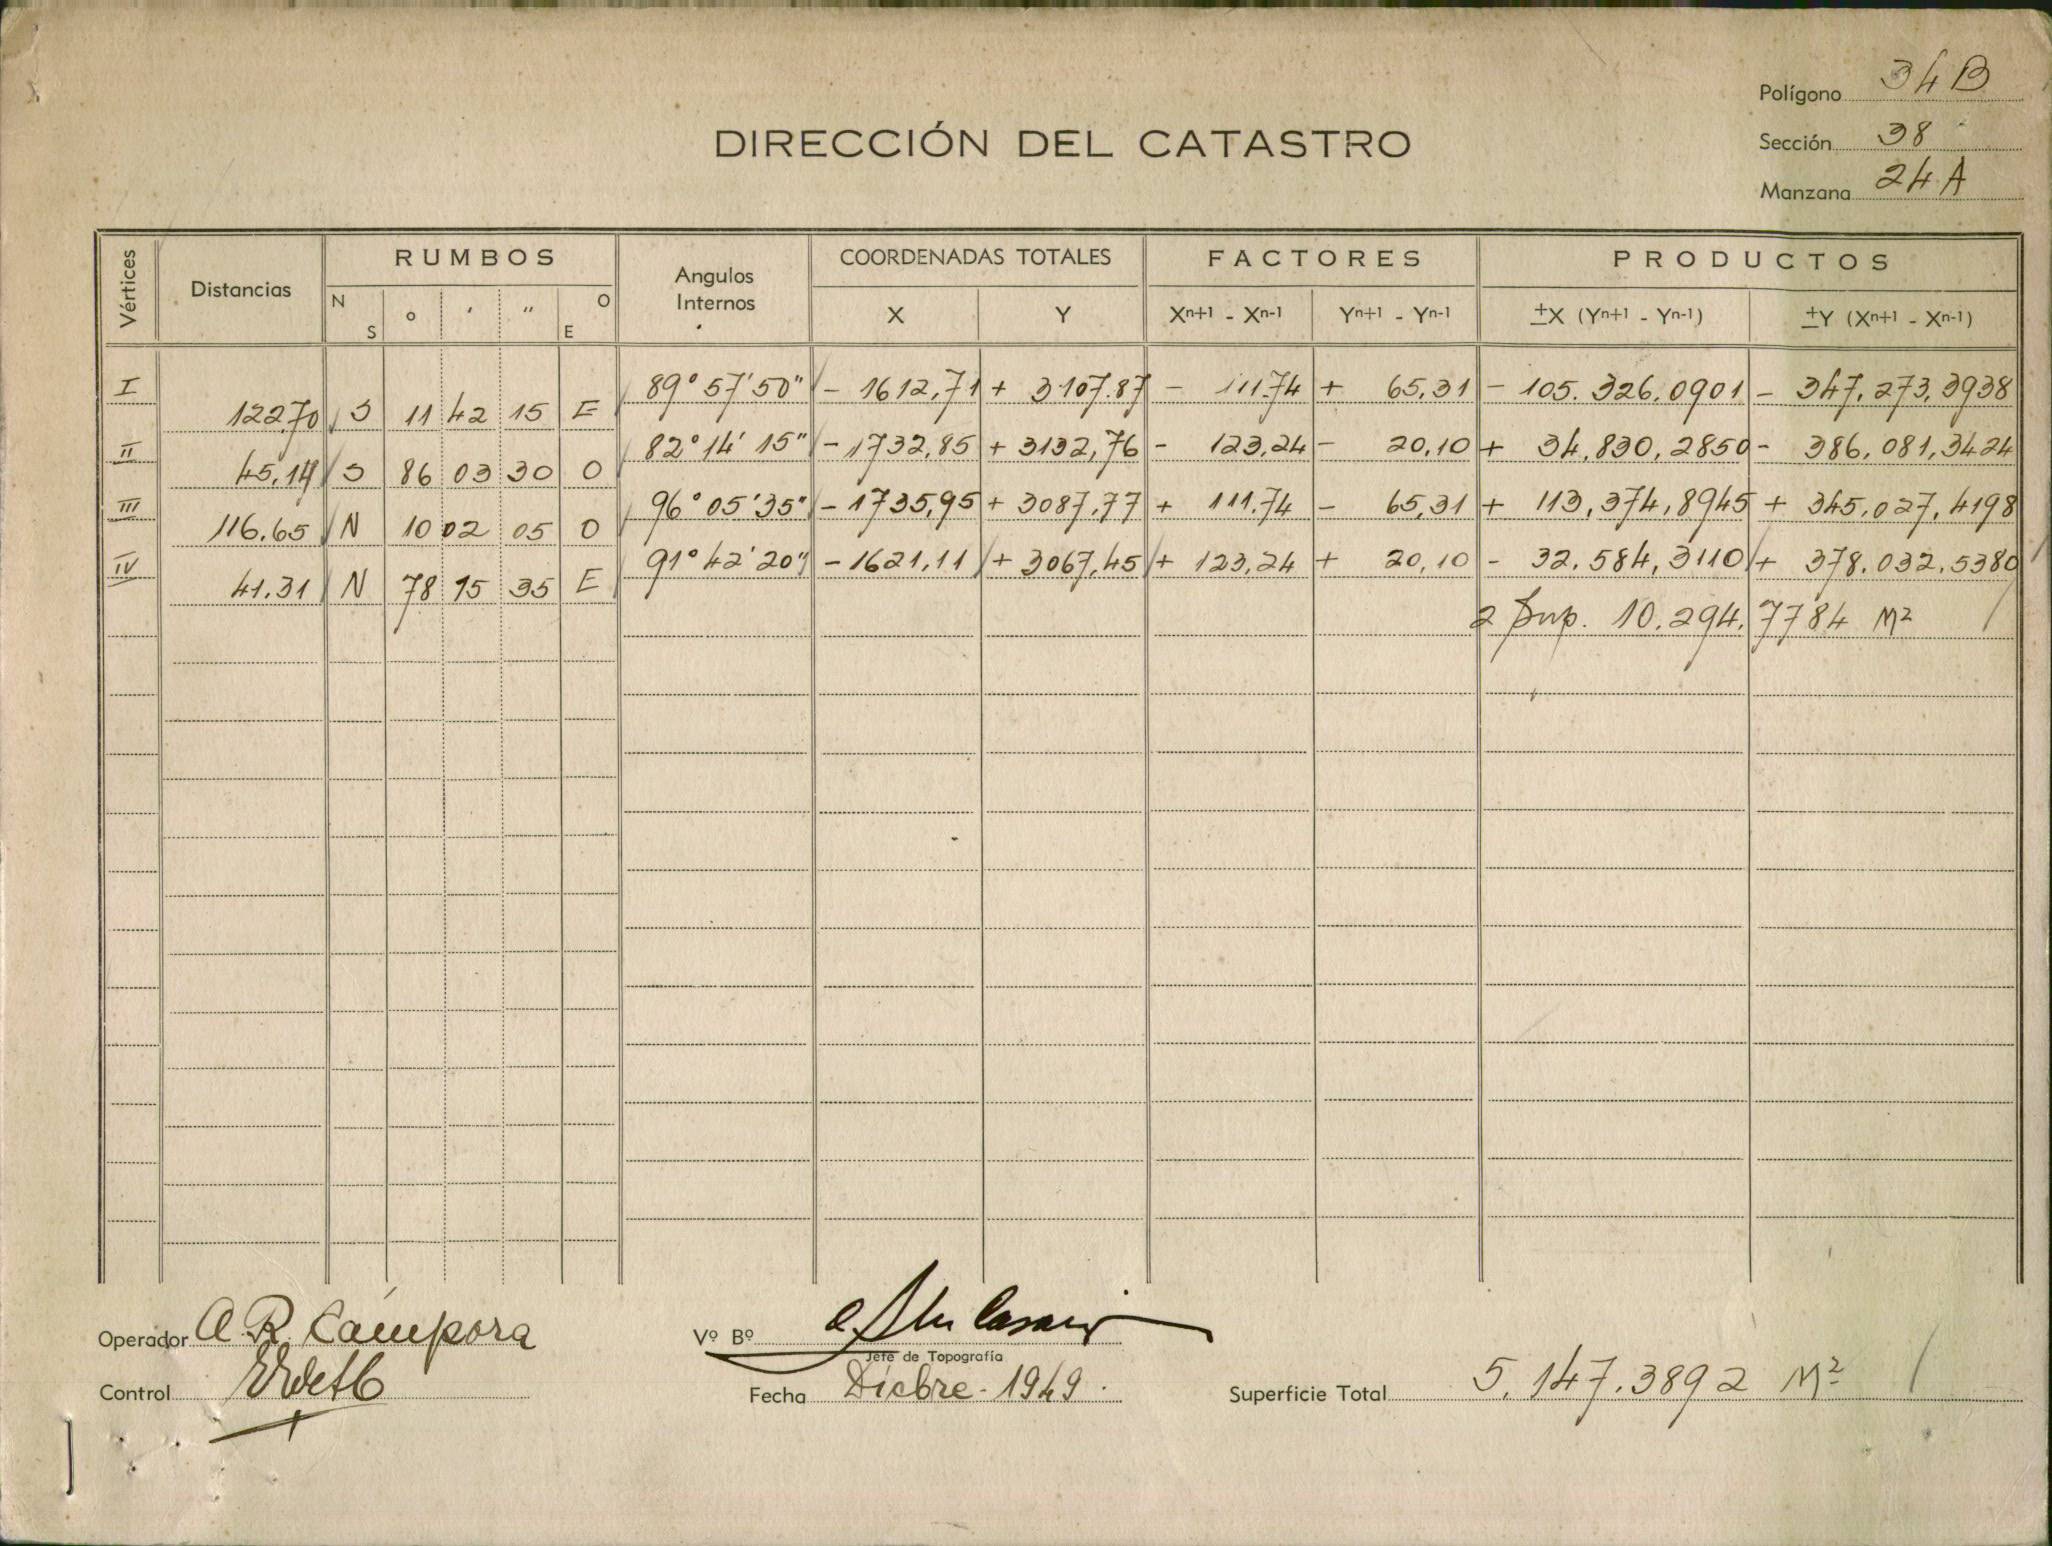 Polígono 34B
DIRECCIÓN DEL CATASTRO
Sección 38
Manzana 24A
Vértices Distancias RUMBOS Angulos Internos COORDENADAS TOTALES FACTORES PRODUCTOS
N S o ' " O E X Y Xn+1 - Xn-1 Yn+1 - Yn-1 ±X (Yn+1 - Yn-1) ±Y (Xn+1 - Xn-1)
I 89° 57' 50" - 1612,71 + 3107.87 - 111.74 + 65,31 - 105.326,0901 - 347,273,3938
122,70 S 11 42 15 E
II 82° 14' 15" - 1732,85 + 3132,76 - 123,24 - 20,10 + 34,830,2850 - 386,081,3424
45,14 S 86 03 30 O
III 96° 05' 35" - 1735,95 + 3087,77 + 111.74 - 65,31 + 113,374,8945 + 345,027,4198
116.65 N 10 02 05 O
IV 91° 42' 20" - 1621,11 + 3067,45 + 123,24 + 20,10 - 32.584,3110 + 378.032.5380
41.31 N 78 15 35 E
2 Sup. 10.294.7784 M²
Operador A. R. Cámpora Vº Bº
Jefe de Topografía
Control Fecha Dicbre - 1949. Superficie Total 5.147.3892 M²